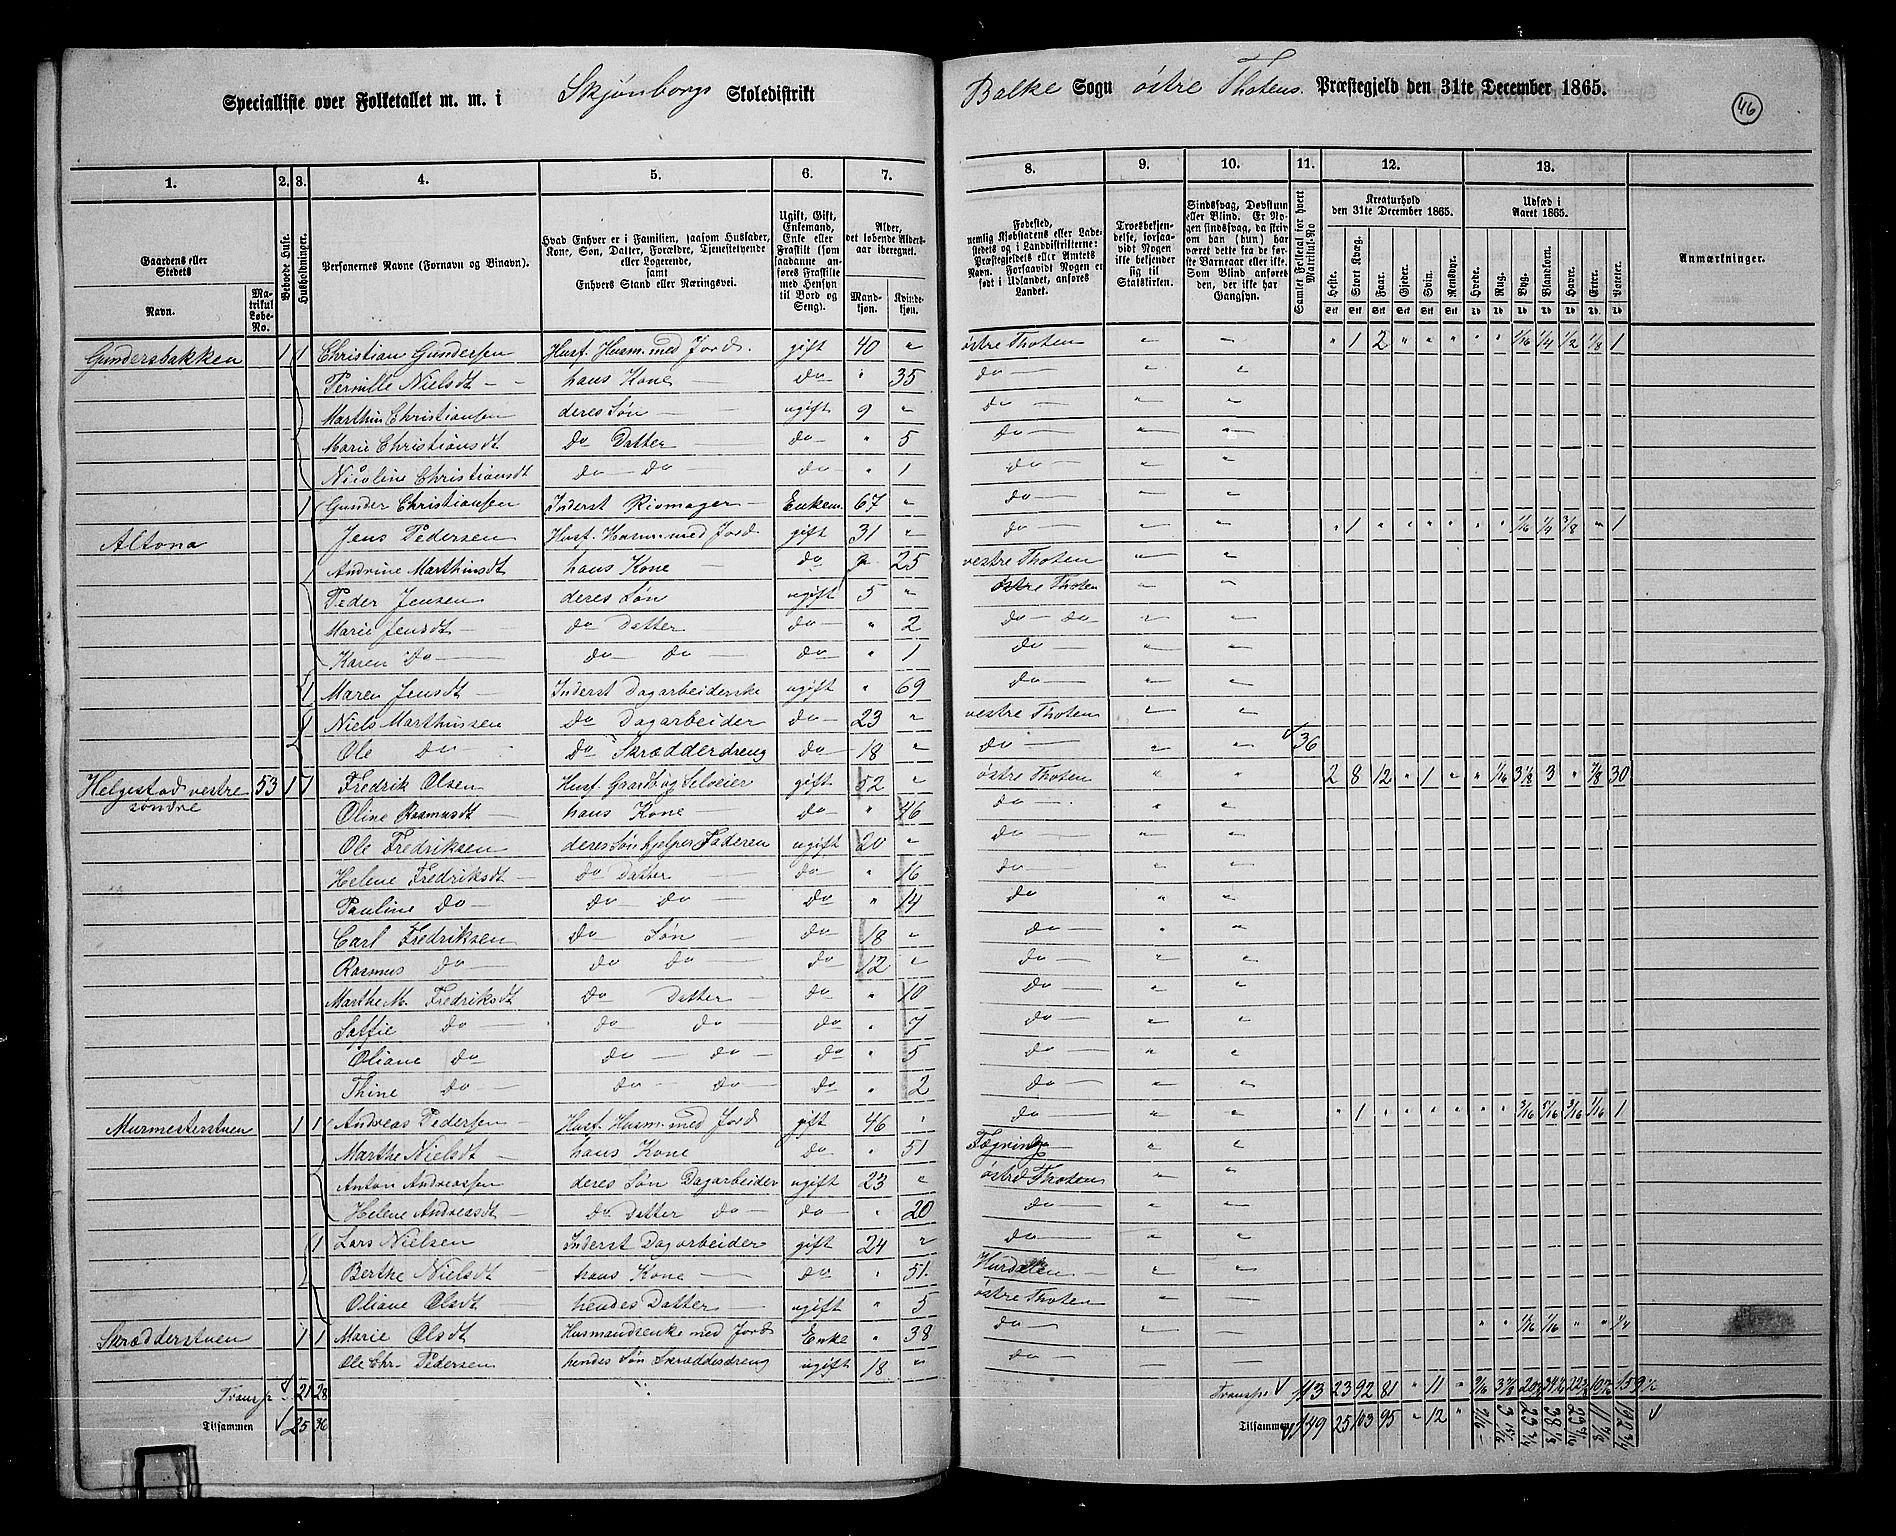 Specialliste over Folketallet m. m. i Skjønborgs Skoledistrikt Balke Sogn østre Thotens Præstegjeld den 31te December 1865.
46
1. 2. 3. 4. 5. 6. 7. 8. 9. 10. 11. 12. 13.
Gaardens eller Stedets
Navn.
Matrikul Løbe-No.
Beboede Huse.
Husholdninger.
Personernes Navne (Fornavn og Binavn).
Hvad Enhver er i Familien, saasom Husfader, Kone, Søn, Datter, Forældre, Tjenestetyende eller Logerende, samt Enhvers Stand eller Næringsvei.
Ugift, Gift, Enkemand, Enke eller Fraskilt (som saadanne anføres Fraskilte med Hensyn til Bord og Seng).
Alder, det løbende Aldersaar iberegnet.
Mandkjøn. Kvindekjøn.
Fødested, nemlig Kjøbstadens eller Ladestedets og i Landdistrikterne: Præstegjeldets eller Amtets Navn. Forsaavidt Nogen er født i Udlandet, anføres Landet.
Troesbekjendelse, forsaavidt Nogen ikke bekjender sig til Statskirken.
Sindssvag, Døvstum eller Blind. Er Nogen sindssvag, da skriv om han (hun) har været dette fra de første Barneaar eller ikke. Som Blind anføres den, der ikke har Gangsyn.
Samlet Folketal for hvert Matrikul-No
Kreaturhold den 31te December 1865.
Heste. Stort Kvæg. Faar. Gjeder. Svin. Rensdyr.
Udsæd i Aaret 1865.
Hvede. Rug. Byg. Blandkorn. Havre. Erter. Poteter.
Anmærkninger.
Gundersbakken 1 1 Christian Gundersen Husf. Husm. med Jord. gift 40 " østre Thoten " " " 1 2 " " " " " 1/16 1/4 1/2 1/8 1
Pernille Nielsdt hans Kone do " 35 do " "
Marthin Christiansen deres Søn ugift 9 " do " "
Marie Christiansdt do Datter do " 5 do " "
Nicoline Christiansdt do do do " 1 do " "
1 Gunder Christiansen Inderst Enkem. 67 " do " "
Altona Jens Pedersen Husf. Husm. med Jord gift 31 " do " " " 1 " " " " " " 1/16 1/4 3/8 " 1
Andrine Marthinsdt hans Kone do " 25 vestre Thoten " "
Peder Jensen deres Søn ugift 5 " østre Thoten " "
Marie Jensdt do Datter do " 2 do do " "
Karen Do do do do " 1 do " "
1 Maren Jensdt Inderst Dagarbeiderske ugift " 69 do " "
1 Niels Marthinsen do Dagarbeider do 23 " vestre Thoten " "
Ole do do Skrædderdreng do 18 " do " " 36
Helgestad vestre søndre 53 1 1 Fredrik Olsen Husf. Gaardbrug Selveier gift 52 " østre Thoten " " 2 8 12 " 1 " " 1/16 3 1/8 3 " 7/8 30
Oline Rasmusdt hans Kone do " 46 do " "
Ole Fredriksen deres Søn hjelper Faderen ugift 20 " do " "
Helene Fredriksdt do Datter do " 16 do " "
Pauline do do do do " 14 do " "
Carl Fredriksen do Søn do 18 " do " "
Rasmus do do do do 12 " do " "
Marthe M. Fredriksdt do Datter do " 10 do " "
Soffie do do do do " 7 do " "
Oliane do do do do " 5 do " "
Thine do do do do " 2 do " "
Murmesterstuen 1 1 Andreas Pedersen Husf. Husm. med Jord gift 46 " do " " " 1 " " " " " " 3/16 5/16 3/16 1/16 1
Marthe Nielsdt hans Kone do " 51 " "
Anton Andreassen deres Søn Dagarbeider ugift 23 " østre Thoten " "
Helene Andreasdt do Datter do do " 20 do " "
1 Lars Nielsen Inderst Dagarbeider gift 24 " do " "
Berthe Nielsdt hans Kone do " 51 Hurdalen " "
Oliane Olsdt hendes Datter ugift " 5 østre Thoten " "
Skrædderstuen 1 1 Marie Olsdt Husmandsenke med Jord Enke " 38 do " " 1/16 1/16 " " 1/4
Ole Chr. Pedersen hendes Søn Skræddedreng ugift 18 " do
Transp 21 28 Transp. 113 23 92 81 " 11 "
Tilsammen 25 36 Tilsammen 149 25 103 95 " 12 "